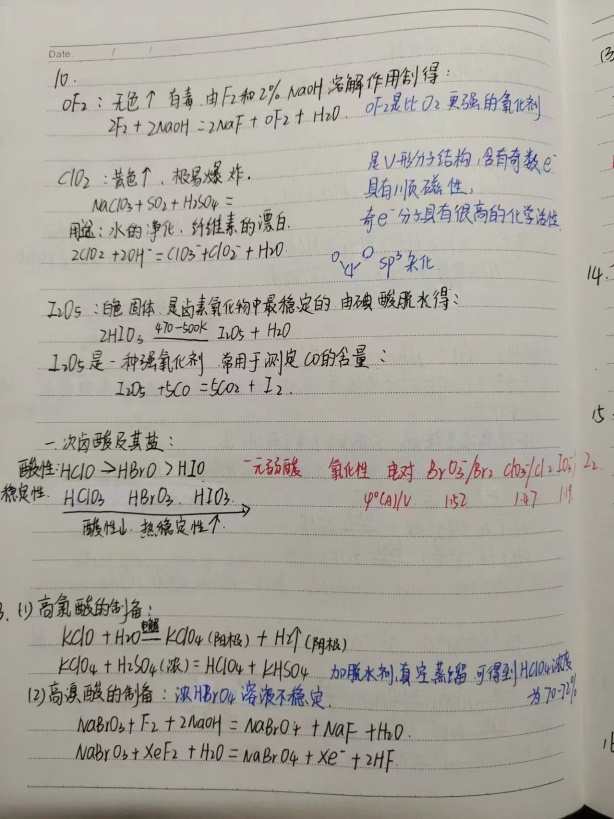 Date. / /
10.
OF2：无色↑ 有毒 由F2和2% NaOH 溶解作用制得：
2F2 + 2NaOH = 2NaF + OF2 + H2O. OF2是比O2更强的氧化剂
ClO2：黄色↑，极易爆炸. 是V形分子结构，含有奇数e⁻
NaClO3 + SO2 + H2SO4 = 具有顺磁性，
用途：水的净化，纤维素的漂白. 奇e⁻分子具有很高的化学活性
2ClO2 + 2OH⁻ = ClO3⁻ + ClO2⁻ + H2O. O Cl O sp³杂化
I2O5：白色固体，是卤素氧化物中最稳定的 由碘酸脱水得：
2HIO3 470-500K I2O5 + H2O
I2O5是一种强氧化剂 常用于测定CO的含量：
I2O5 + 5CO = 5CO2 + I2.
一次卤酸及其盐：
酸性：HClO > HBrO > HIO 一元弱酸 氧化性 电对 BrO3⁻/Br2 ClO3⁻/Cl2 IO3⁻/I2
稳定性. HClO3 HBrO3 HIO3. φ°(A)/V 1.52 1.47 1.19
酸性↓ 热稳定性↑.
3. (1) 高氯酸的制备：
KClO + H2O 电解 KClO4 (阳极) + H2↑ (阴极)
KClO4 + H2SO4(浓) = HClO4 + KHSO4 加脱水剂，真空蒸馏 可得到HClO4浓度
(2) 高溴酸的制备：浓HBrO4溶液不稳定. 为70-72%
NaBrO3 + F2 + 2NaOH = NaBrO4 + NaF + H2O.
NaBrO3 + XeF2 + H2O = NaBrO4 + Xe⁻ + 2HF
14.
15.